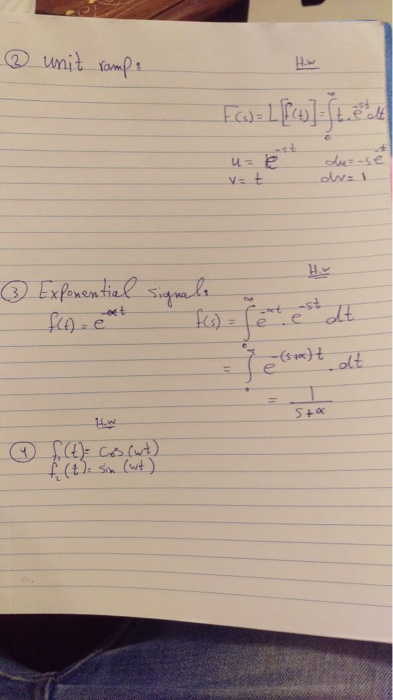 ② unit ramp:
H.w
F(s) = L[f(t)] = ∫₀^∞ t . e^-st dt
u = e^-st du = -se^-st
v = t dv = 1
H.w
③ Exponential signal:
f(t) = e^-αt f(s) = ∫₀^∞ e^-αt . e^-st dt
= ∫₀^∞ e^-(s+α)t . dt
= 1/(s+α)
H.w
④ f₁(t) = cos(wt)
f₂(t) = sin(wt)